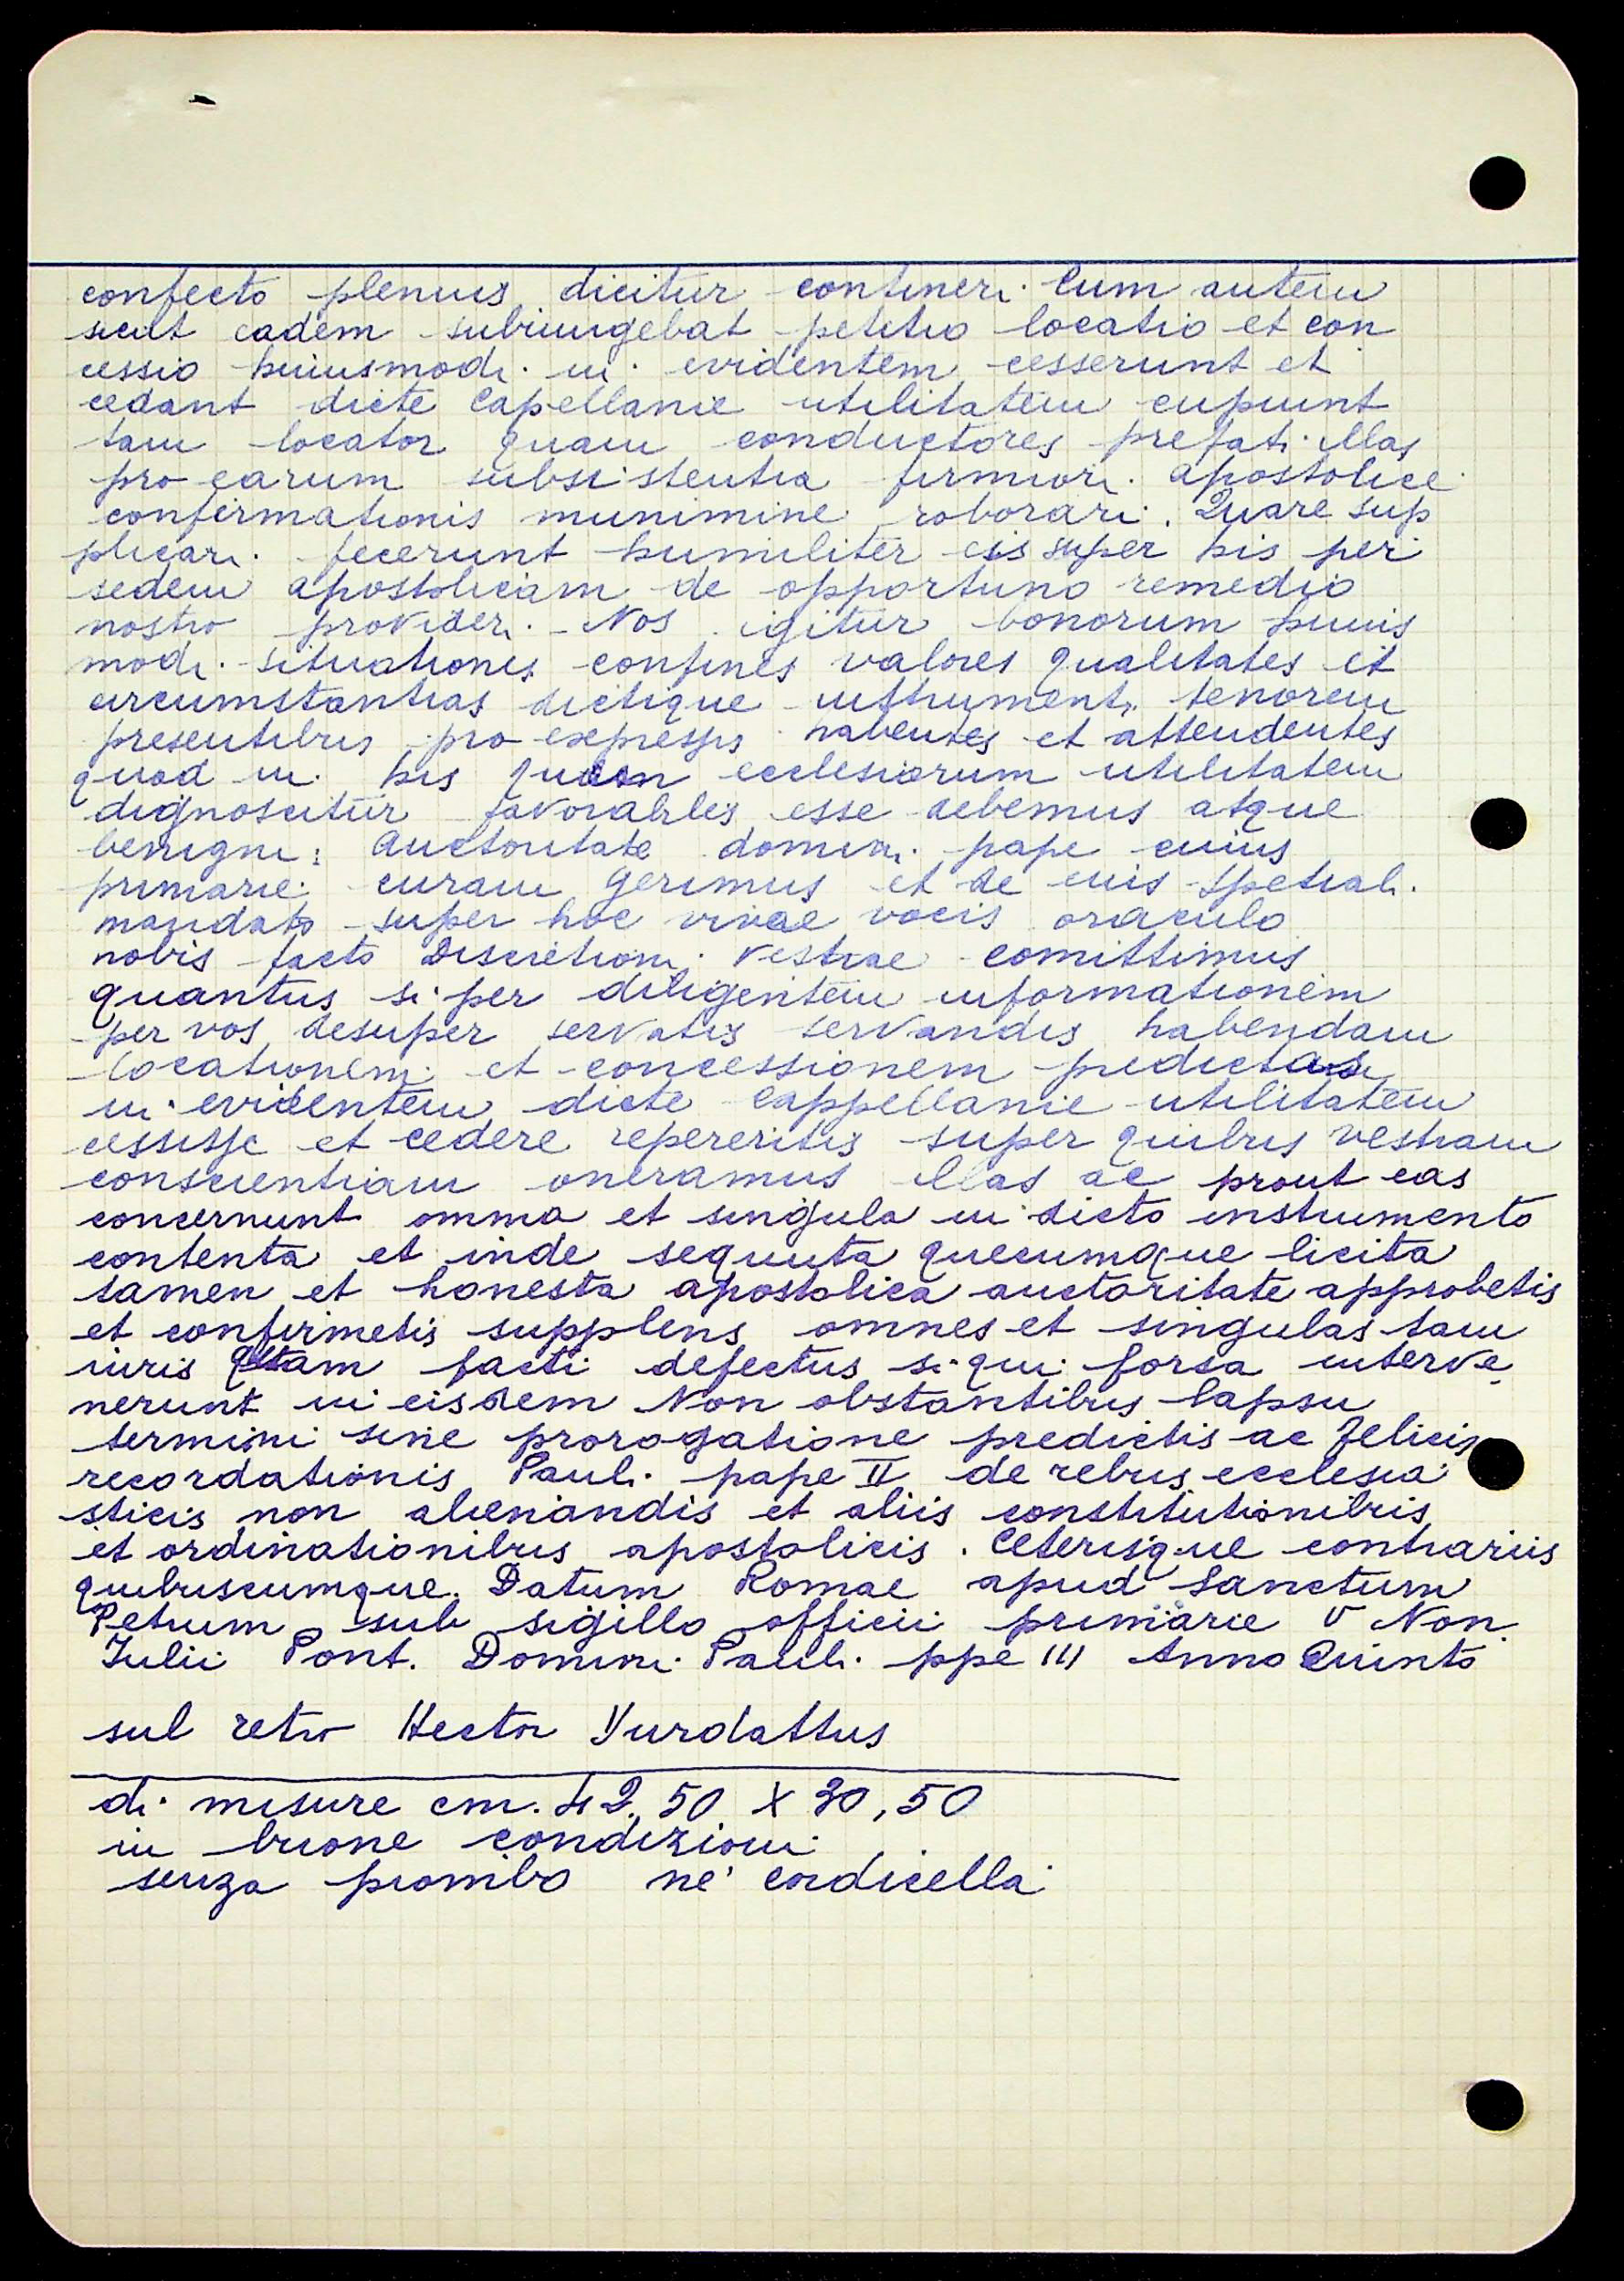 confecto plenius dicitur contineri. Cum autem
sicut eadem subiungebat petitio locatio et con
cessio huiusmodi in evidentem cesserunt et
cedant dicte Capellanie utilitatem cupiunt
tam locator quam conductores prefati illas
pro earum subsistentia firmiori apostolice
confirmationis munimine roborari. Quare sup
plicari fecerunt humiliter eis super his per
sedem apostolicam de opportuno remedio
nostro provideri. Nos igitur bonorum huius
modi situationes confines valores qualitates et
circumstantias dictique instrumenti tenorem
presentibus pro expressis habentes et attendentes
quod in his quam ecclesiarum utilitatem
dignoscitur favorabiles esse debemus atque
benigni: Auctoritate domini pape cuius
primarie curam gerimus et de euis spetiali
mandato super hoc vivae vocis oraculo
nobis facto Discretioni Vestrae comittimus
quantus si per diligentem informationem
per vos desuper servatis servandis habendam
locationem et concessionem predictas
in evidentem dicte Cappellanie utilitatem
cessisse et cedere repereritis super quibus vestram
conscientiam oneramus illas ac prout eas
concernunt omnia et singula in dicto instrumento
contenta et inde sequuta quecumque licita
tamen et honesta apostolica auctoritate approbetis
et confirmetis supplens omnes et singulas tam
iuris quam facti defectus si qui forsa interve
nerunt in eisdem Non obstantibus lapsu
termini sine prorogatione predictis ac felicis
recordationis Pauli pape II de rebus ecclesia
sticis non alienandis et aliis constitutionibus
et ordinationibus apostolicis. Ceterisque contrariis
quibuscumque. Datum Romae apud Sanctum
Petrum sub sigillo officii primarie V Non
Iulii Pont. Domini Pauli ppe III Anno Quinto
sul retro Hector
di misure cm. 42,50 x 30,50
in buone condizioni
senza piombo ne' cordicella